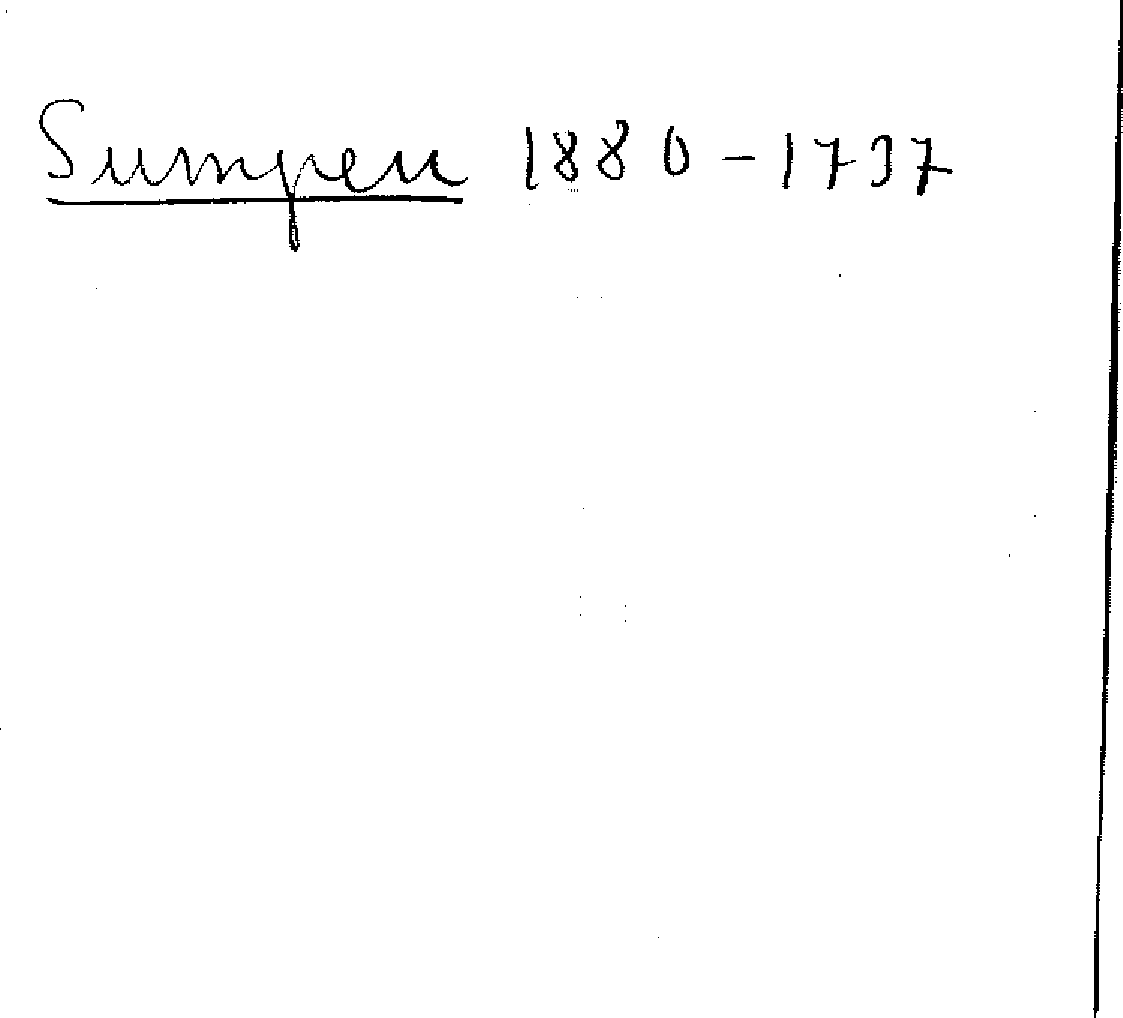 Sumpen 1880-1737